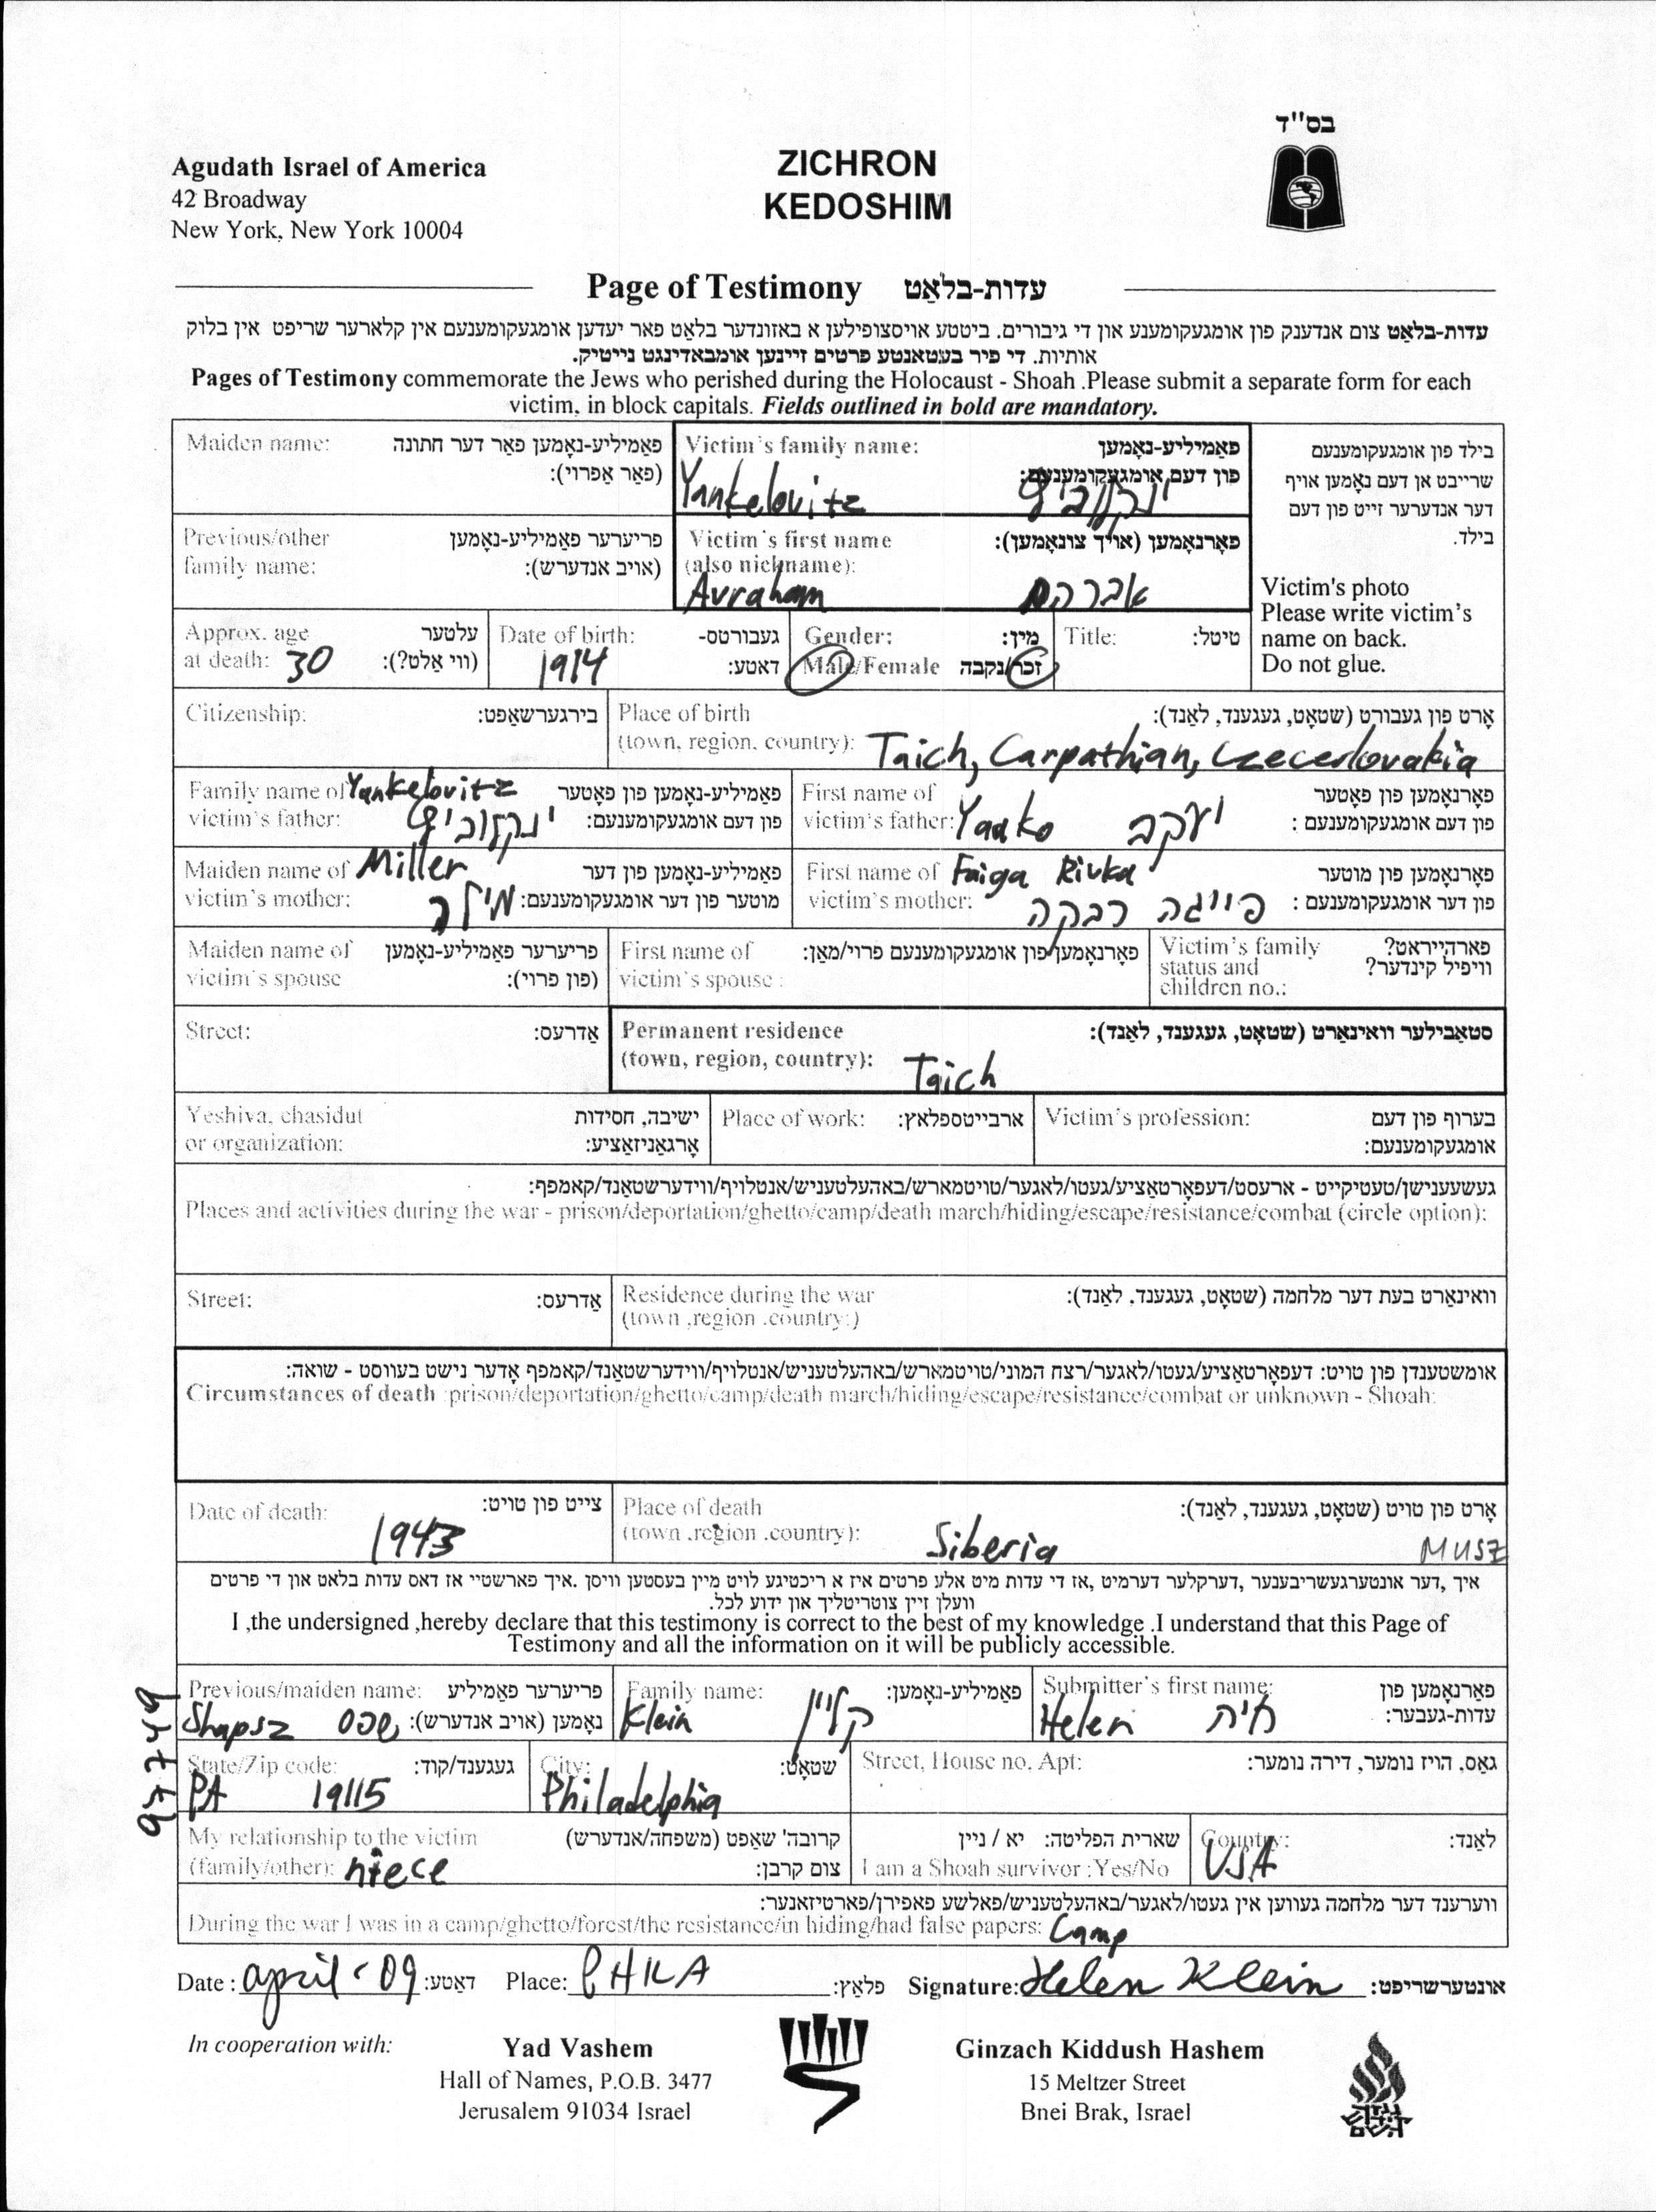 בס"ד
Agudath Israel of America
42 Broadway
New York, New York 10004
ZICHRON
KEDOSHIM
Page of Testimony עדות-בלאַט
עדות-בלאַט צום אנדענק פון אומגעקומענע און די גיבורים. ביטטע אויסצופילען א באזונדער בלאַט פאר יעדען אומגעקומענעם אין קלארער שריפט אין בלוק
אותיות. די פיר בעטאנטע פרטים זיינען אומבאדינגט נייטיק.
Pages of Testimony commemorate the Jews who perished during the Holocaust - Shoah .Please submit a separate form for each
victim, in block capitals. Fields outlined in bold are mandatory.
Maiden name: פאַמיליע-נאָמען פאַר דער חתונה
(פאַר אַפרוי):
Victim's family name: פאַמיליע-נאָמען
פון דעם אומגעקומענעם:
Yankelovitz ינקלוביץ
בילד פון אומגעקומענעם
שרייבט אן דעם נאָמען אויף
דער אנדערער זייט פון דעם
בילד.
Victim's photo
Please write victim's
name on back.
Do not glue.
Previous/other פריערער פאַמיליע-נאָמען
family name: (אויב אנדערש):
Victim's first name פאָרנאָמען (אויך צונאָמען):
(also nickname):
Avraham אברהם
Approx. age עלטער
at death: 30 (ווי אַלט?):
Date of birth: געבורטס-
1914 דאטע:
Gender: מין:
Male/Female זכר/נקבה
Title: טיטל:
Citizenship: בירגערשאַפט:
Place of birth אָרט פון געבורט (שטאָט, געגענד, לאַנד):
(town, region, country): Taich, Carpathian, Czecerlovakia
Family name of Yankelovitz פאַמיליע-נאָמען פון פאָטער
victim's father: ינקלוביץ פון דעם אומגעקומענעם:
First name of פאָרנאָמען פון פאָטער
victim's father: Yaako יעקב פון דעם אומגעקומענעם :
Maiden name of Miller פאַמיליע-נאָמען פון דער
victim's mother: מילר מוטער פון דער אומגעקומענעם:
First name of Faiga Rivka פאָרנאָמען פון מוטער
victim's mother: פייגה רבקה פון דער אומגעקומענעם :
Maiden name of פריערער פאַמיליע-נאָמען
victim's spouse (פון פרוי):
First name of פאָרנאָמען פון אומגעקומענעם פרוי/מאַן:
victim's spouse :
Victim's family פארהייראט?
status and וויפיל קינדער?
children no.:
Street: אַדרעס:
Permanent residence סטאַבילער וואוינאָרט (שטאָט, געגענד, לאַנד):
(town, region, country): Taich
Yeshiva, chasidut ישיבה, חסידות
or organization: אָרגאַניזאַציע:
Place of work: ארבייטספלאץ:
Victim's profession: בערוף פון דעם
אומגעקומענעם:
געשעענישן/טעטיקייט - ארעסט/דעפאָרטאַציע/געטו/לאגער/טויטמארש/באהעלטעניש/אנטלויף/ווידערשטאַנד/קאמפף:
Places and activities during the war - prison/deportation/ghetto/camp/death march/hiding/escape/resistance/combat (circle option):
Street: אַדרעס:
Residence during the war וואוינאָרט בעת דער מלחמה (שטאָט, געגענד, לאַנד):
(town ,region .country:)
אומשטענדן פון טויט: דעפאָרטאַציע/געטו/לאגער/רצח המוני/טויטמארש/באהעלטעניש/אנטלויף/ווידערשטאַנד/קאמפף אָדער נישט בעווסט - שואה:
Circumstances of death :prison/deportation/ghetto/camp/death march/hiding/escape/resistance/combat or unknown - Shoah:
Date of death: צייט פון טויט:
1943
Place of death אָרט פון טויט (שטאָט, געגענד, לאַנד):
(town .region .country): Siberia MUSZ
איך ,דער אונטערגעשריבענער ,דערקלער דערמיט ,אז די עדות מיט אלע פרטים איז א ריכטיגע לויט מיין בעסטען וויסן .איך פארשטיי אז דאס עדות בלאט און די פרטים
וועלן זיין צוטריטליך און ידוע לכל.
I ,the undersigned ,hereby declare that this testimony is correct to the best of my knowledge .I understand that this Page of
Testimony and all the information on it will be publicly accessible.
Previous/maiden name: פריערער פאַמיליע
Shapsz שפס נאָמען (אויב אנדערש):
Family name: פאַמיליע-נאָמען:
Klein קליין
Submitter's first name: פאָרנאָמען פון
Helen חיה עדות-געבער:
State/Zip code: געגענד/קוד:
PA 19115
City: שטאָט:
Philadelphia
Street, House no. Apt: גאַס, הויז נומער, דירה נומער:
My relationship to the victim קרובה' שאַפט (משפחה/אנדערש)
(family/other): niece צום קרבן:
שארית הפליטה: יא / ניין
I am a Shoah survivor :Yes/No
Country: לאַנד:
USA
ווערענד דער מלחמה געווען אין געטו/לאגער/באהעלטעניש/פאלשע פאפירן/פארטיזאנער:
During the war I was in a camp/ghetto/forest/the resistance/in hiding/had false papers: Camp
Date : april - 09 דאַטע: Place: PHILA פלאַץ: Signature: Helen Klein אונטערשריפט:
In cooperation with:
Yad Vashem
Hall of Names, P.O.B. 3477
Jerusalem 91034 Israel
Ginzach Kiddush Hashem
15 Meltzer Street
Bnei Brak, Israel